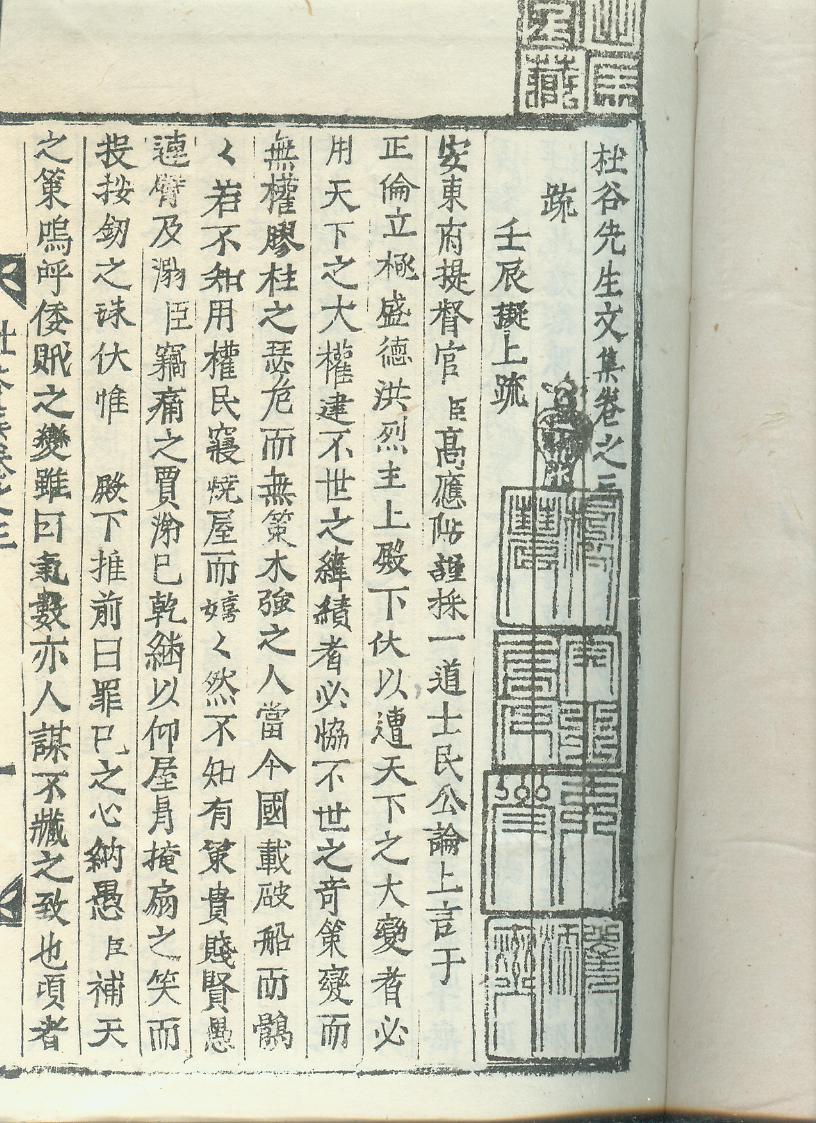 杜谷先生文集卷之三
疏
壬辰擬上疏
安東府提督官臣高應陟謹採一道士民公論上言于
正倫立極盛德洪烈主上殿下伏以遭天下之大變者必
用天下之大權建不世之緯績者必恊不世之奇策變而
無權膠柱之瑟危而無策木強之人當今國載破船而鶻
〻若不知用權民寢燒屋而嬉〻然不知有策貴賤賢愚
連臂及溺臣竊痛之賈渧已乾緬以仰屋肙掩扇之笑而
投按釰之珠伏惟 殿下推前日罪已之心納愚臣補天
之策嗚呼倭賊之變雖曰氣數亦人謀不臧之致也頃者
杜谷集卷之三
一